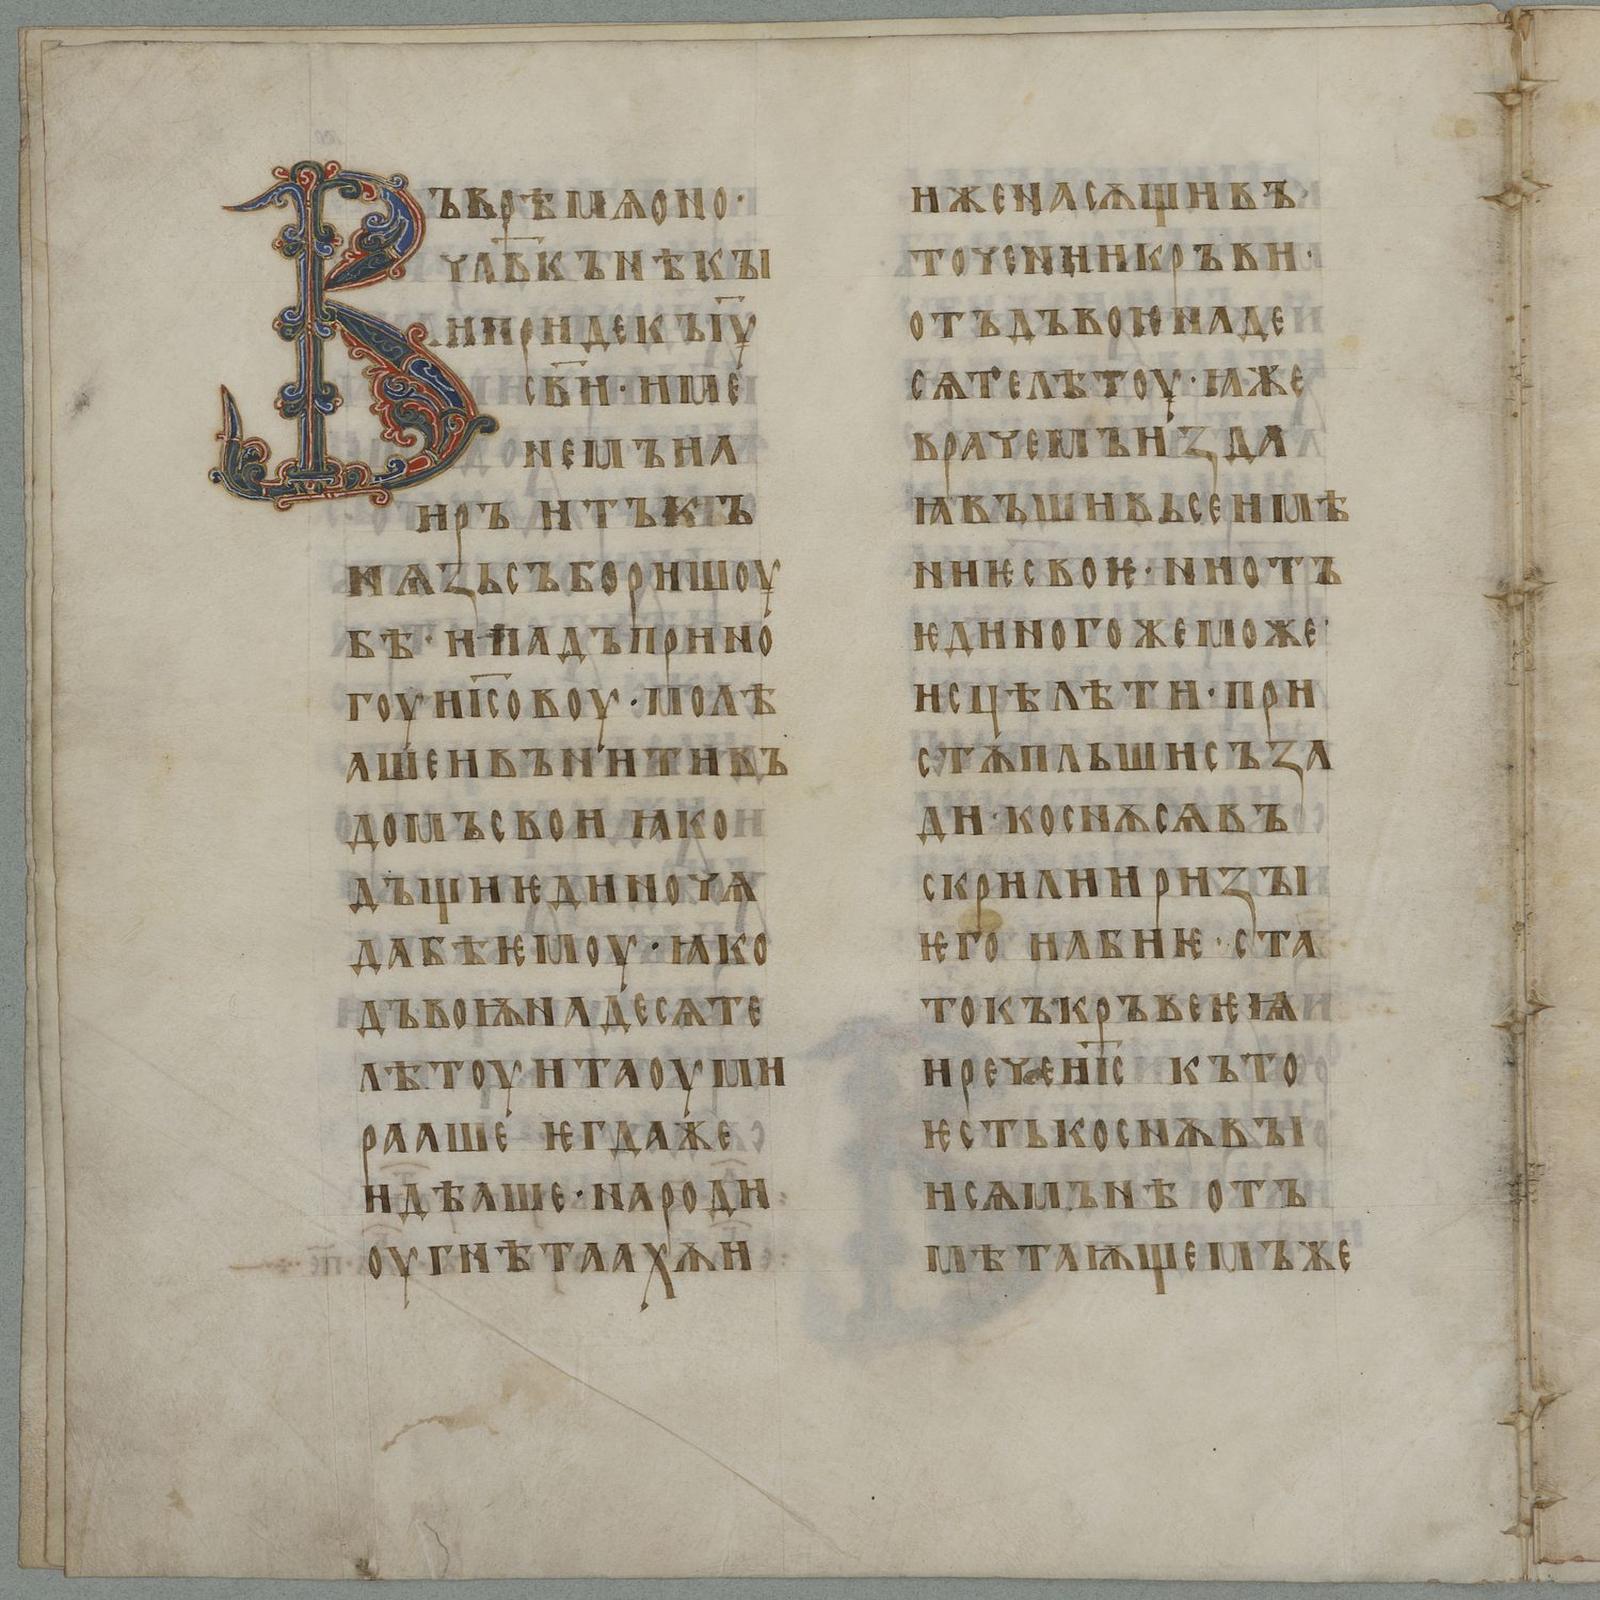 Въврѣмѧоно·
ч҃лвкънѣкꙑ
ипридекъі҃у
сви·име́
немъиа
иръ итъкъ
нѧꙁьсъборишоу
бѣ·ипадъприно́
гоуі҃совоу·молѣ
аше́ивън҄итивъ
домъсвои ꙗко
дъщиѥдиночѧ
дабѣѥмоу·ꙗко
дъвоѭнадесѧте
лѣтоуитаоуми
рааше ѥгдаже
идѣаше·народи
оугнѣтаахѫи
иженасѫщивъ
точениикръви·
отъдъвоѥнаде
сѧтелѣтоу·ꙗже
врачемъиꙁда
ꙗвъшивьсеимѣ
ниѥсвоѥ·ниотъ
ѥдиногожеможе
исцѣлѣти·при
стѫпльшисъꙁа
ди·коснѫсѧвъ
скрилиириꙁꙑ
ѥго иабиѥ·ста
токъкръвеѥѩ
иречеі҃с къто
ѥстькоснѫвꙑ
исѧмънѣ отъ
мѣтаѭщемъже